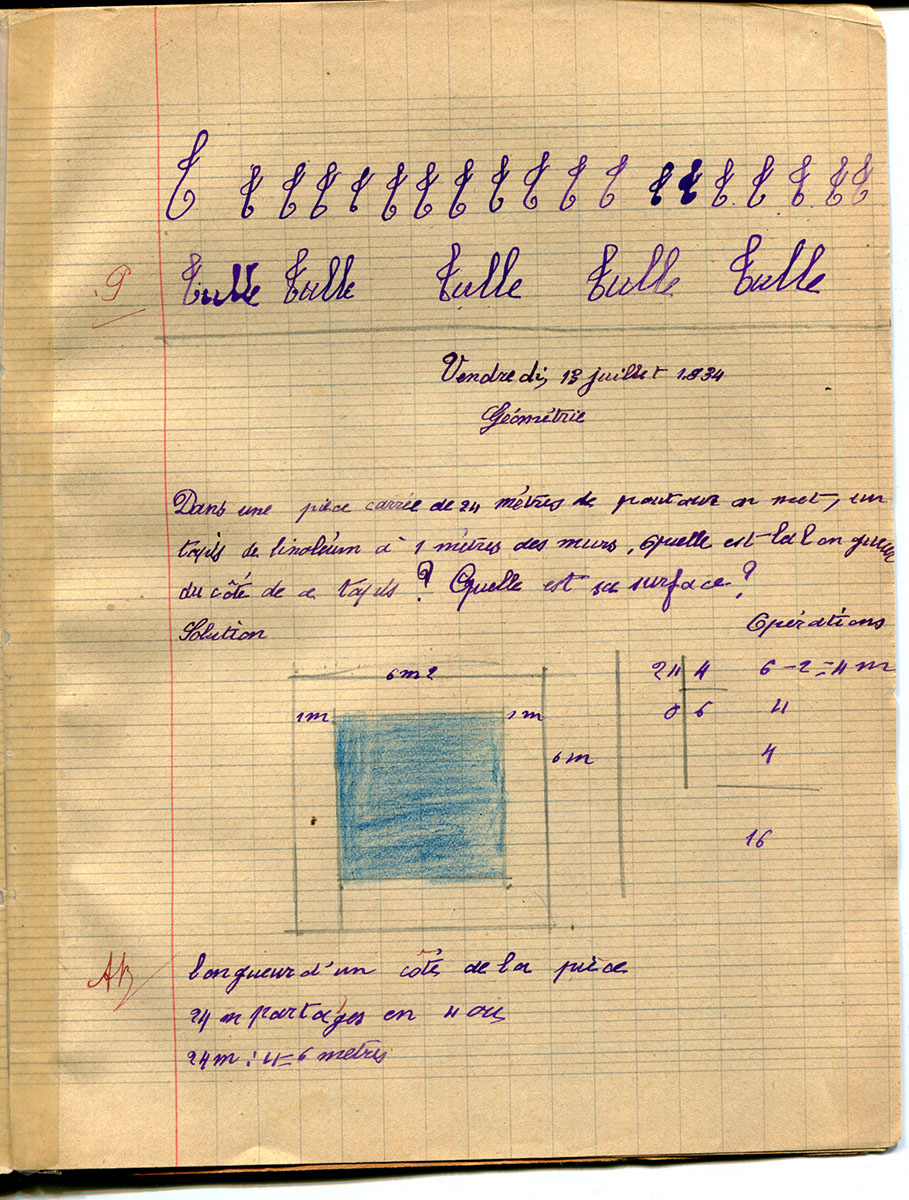 T t t t t t t t t t t t t t t t t t t
Tulle Tulle Tulle Tulle Tulle
9
Vendredi, 13 juillet 1934
Géométrie
Dans une pièce carrée de 24 mètres de pourtour on met, un
tapis de linoléum à 1 mètres des murs. Quelle est la longueur
du côté de ce tapis ? Quelle est sa surface ?
Solution
Opérations
6m2
24 4 6 - 2 = 4 m
1m 1m
0 6 4
6m
4
16
longueur d'un côté de la pièce
24 m partagés en 4 ou
24m : 4 = 6 metres